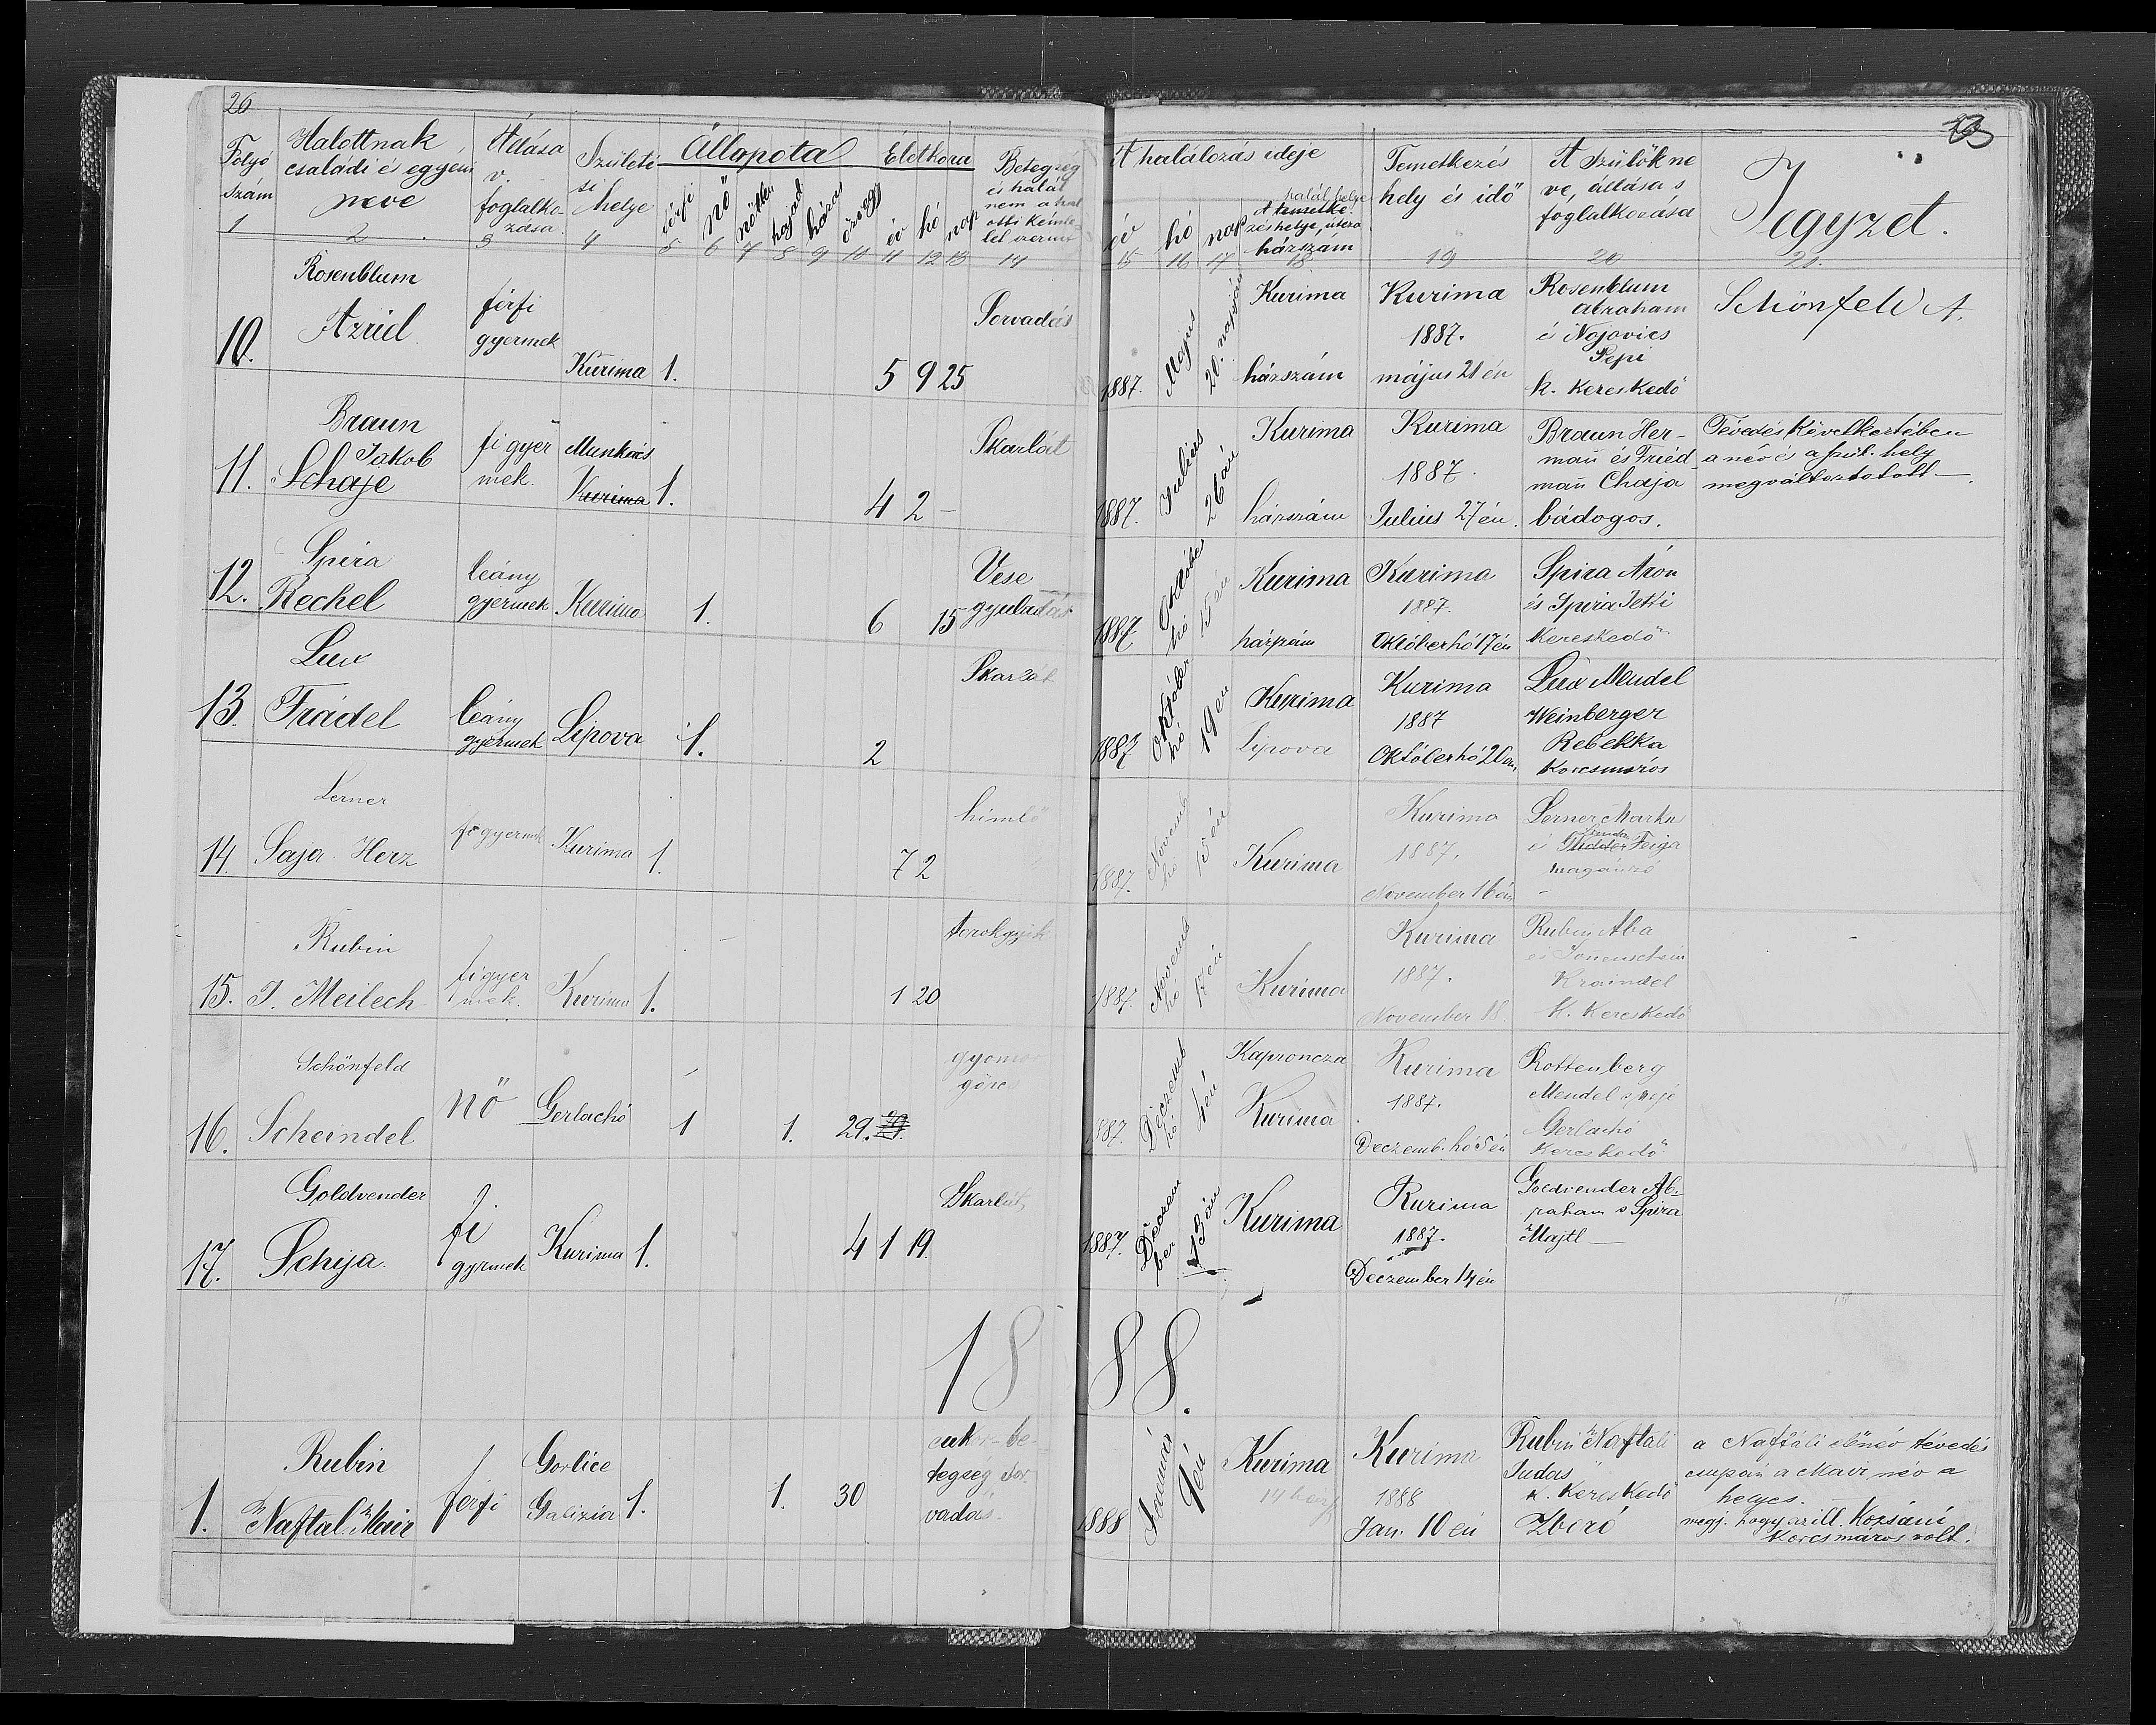 26
Folyó szám
Halottnak családi és egyéni neve
Állása v. foglalkozása
Születési helye
Állapota
férfi nő nőtlen hajad házas özvegy
Életkora
év hó nap
Betegség és halál nem a hal otti kémle let szerint
1 2 3 4 5 6 7 8 9 10 11 12 13 14
A halálozás ideje
év hó nap
halál helye
A temetkezés helye, utcza
házszám
Temetkezés hely és idő
A szülők neve, állása s foglalkozása
Jegyzet.
15 16 17 18 19 20 21.
10. Rosenblum Azriel férfi gyermek Kurima 1. 5 9 25 Sorvadás
1887. Május 20. napján Kurima házszám Kurima 1887. május 21én Rosenblum Abraham és Najovics Pepi k. kereskedő Schönfeld A.
11. Braun Jakob Schaje fi gyermek. Munkács Kurima 1. 4 2 – Skarlát
1887. Julius 26án Kurima házszám Kurima 1887. Julius 27én. Braun Hermañ és Friedmañ Chaja bádogos. Tévedés következtében a név és a szül. hely megváltoztatott.
12. Spira Rechel leány gyermek Kurima 1. 6 15 Vese gyuladás
1887 Október hó 15én Kurima házszám Kurima 1887. Októberhó 17én Spira Áron és Spira Jetti kereskedő
13. Lux Frádel leány gyermek Lipova 1. 2 Skarlát
1887 Október hó 19én Kurima Lipova Kurima 1887 Októberhó 20án Lux Mendel Weinberger Rebekka Korcsmáros
14. Lerner Saja Herz fi gyermek Kurima 1. 7 2 himlő
1887. Novemb hó 15én Kurima Kurima 1887. November 16án Lerner Marku é Feiga magánzó
15. Rubin J. Meilech figyermek. Kurima 1. 1 20 torokgyík
1887. Novemb hó 17én Kurima Kurima 1887. November 18. Rubin Aba és Sonenschein Kraindel k. kereskedő
16. Schönfeld Scheindel nő Gerlachó 1 1. 29. gyomor görcs
1887. Deczemb hó 4én Kaproncza Kurima Kurima 1887. Deczemb. hó 5én Rottenberg Mendel s neje Gerlachó kereskedő
17. Goldvender Schija. fi gyrmek Kurima 1. 4 1 19. Skarlát
1887. Deczember 13án Kurima Kurima 1887. Deczember 14én Goldvender Abraham s Spira Majtl
1888.
1. Rubin Naftal Mair férfi Gorlice Galizia 1. 1. 30 cukor-betegség sorvadás.
1888 Január 9én Kurima 14 házsz Kurima 1888 Jan. 10én Rubin Naftali Judas k. kereskedő Zboró a Naftáli előnév tévedés csupán a Mair név a helyes. megj. hogy az ill. Kozsáni Korcsmáros volt.